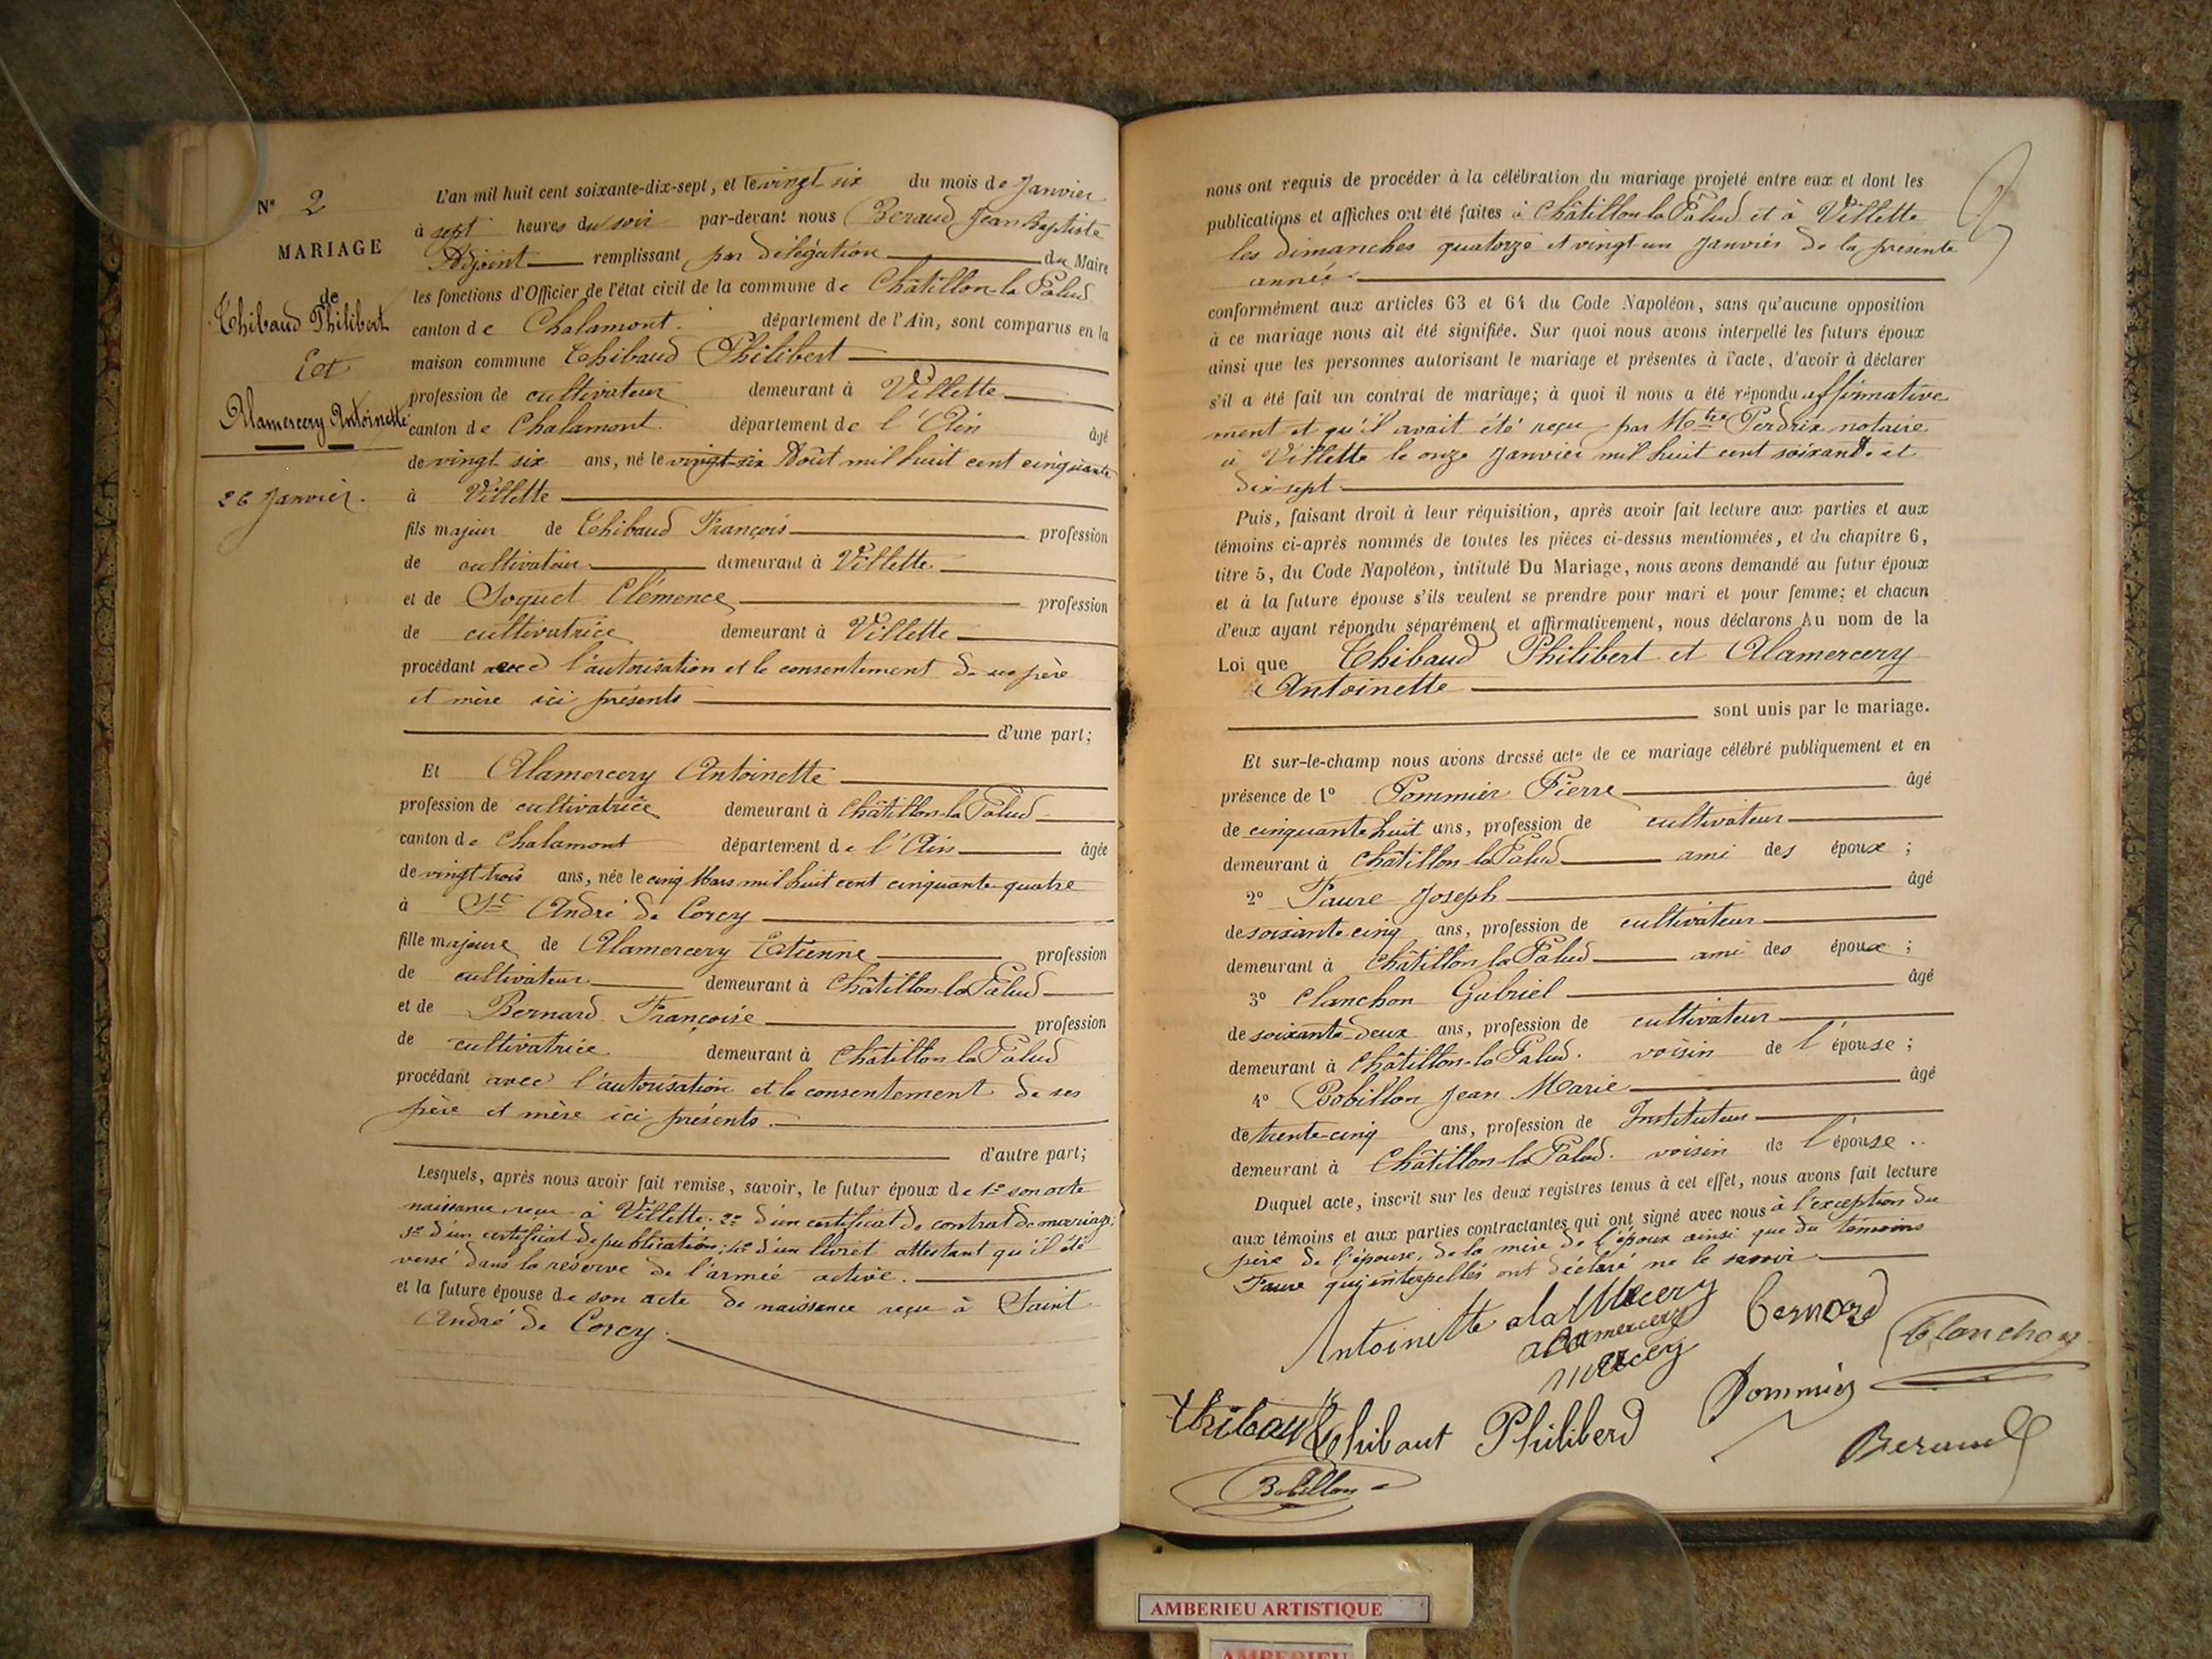 N° 2
MARIAGE
de
Thibaud Philibert
Et
Alamercery Antoinette
26 Janvier.
L'an mil huit cent soixante-dix-sept, et le vingt six du mois de Janvier
à sept heures du soir par-devant nous Beraud Jean Baptiste
Adjoint remplissant par délégation du Maire
les fonctions d'Officier de l'état civil de la commune de Châtillon-la Palud
canton de Chalamont. département de l'Ain, sont comparus en la
maison commune Thibaud Philibert
profession de cultivateur demeurant à Villette
canton de Chalamont département de l'Ain âgé
de vingt six ans, né le vingt-six Août mil huit cent cinquante
à Villette
fils majeur de Thibaud François profession
de cultivateur demeurant à Villette.
et de Soquet Clémence profession
de cultivatrice demeurant à Villette
procédant avec l'autorisation et le consentement de ses père
et mère ici présents
d'une part;
Et Alamercery Antoinette
profession de cultivatrice demeurant à Châtillon-la Palud
canton de Chalamont département de l'Ain âgée
de vingt trois ans, née le cinq Mars mil huit cent cinquante-quatre
à St André de Corcy
fille majeure de Alamercery Etienne profession
de cultivateur demeurant à Châtillon-la Palud
et de Bernard Françoise profession
de cultivatrice demeurant à Châtillon la Palud
procédant avec l'autorisation et le consentement de ses
père et mère ici présents.
d'autre part;
Lesquels, après nous avoir fait remise, savoir, le futur époux de 1° son acte
naissance reçu à Villette; 2° d'un certificat de contrat de mariage;
3° d'un certificat de publication; 4° d'un livret attestant qu'il été
versé dans la réserve de l'armée active.
et la future épouse de son acte de naissance reçu à Saint
André de Corcy.
nous ont requis de procéder à la célébration du mariage projeté entre eux et dont les
publications et affiches ont été faites à Châtillon la Palud et à Villette
les dimanches quatorze et vingt un Janvier de la présente
année.
conformément aux articles 63 et 64 du Code Napoléon, sans qu'aucune opposition
à ce mariage nous ait été signifiée. Sur quoi nous avons interpellé les futurs époux
ainsi que les personnes autorisant le mariage et présentes à l'acte, d'avoir à déclarer
s'il a été fait un contrat de mariage; à quoi il nous a été répondu affirmative
ment et qu'il avait été reçu par Mtre Perdrix notaire
à Villette le onze Janvier mil huit cent soixante et
dix-sept
Puis, faisant droit à leur réquisition, après avoir fait lecture aux parties et aux
témoins ci-après nommés de toutes les pièces ci-dessus mentionnées, et du chapitre 6,
titre 5, du Code Napoléon, intitulé Du Mariage, nous avons demandé au futur époux
et à la future épouse s'ils veulent se prendre pour mari et pour femme; et chacun
d'eux ayant répondu séparément et affirmativement, nous déclarons Au nom de la
Loi que Thibaud Philibert et Alamercery
Antoinette
sont unis par le mariage.
Et sur-le-champ nous avons dressé acte de ce mariage célébré publiquement et en
présence de 1° Pommier Pierre âgé
de cinquante huit ans, profession de cultivateur
demeurant à Châtillon-la Palud ami des époux;
2° Faure Joseph âgé
de soixante cinq ans, profession de cultivateur
demeurant à Châtillon la Palud ami des époux;
3° Clanchon Gabriel âgé
de soixante-deux ans, profession de cultivateur
demeurant à Châtillon-la Palud. voisin de l'épouse;
4° Bobillon Jean Marie âgé
de trente-cinq ans, profession de Instituteur
demeurant à Châtillon-la Palud. voisin de l'épouse..
Duquel acte, inscrit sur les deux registres tenus à cet effet, nous avons fait lecture
aux témoins et aux parties contractantes qui ont signé avec nous à l'exception du
père de l'épouse, de la mère de l'époux ainsi que du témoins
Faure qui interpellés ont déclaré ne le savoir
Antoinette alaMercery Bernard
alamercery
mercery
Clanchon
Pommier
Thibaut Philiberd
Beraud
Bobillon
AMBERIEU ARTISTIQUE
AMBERIEU